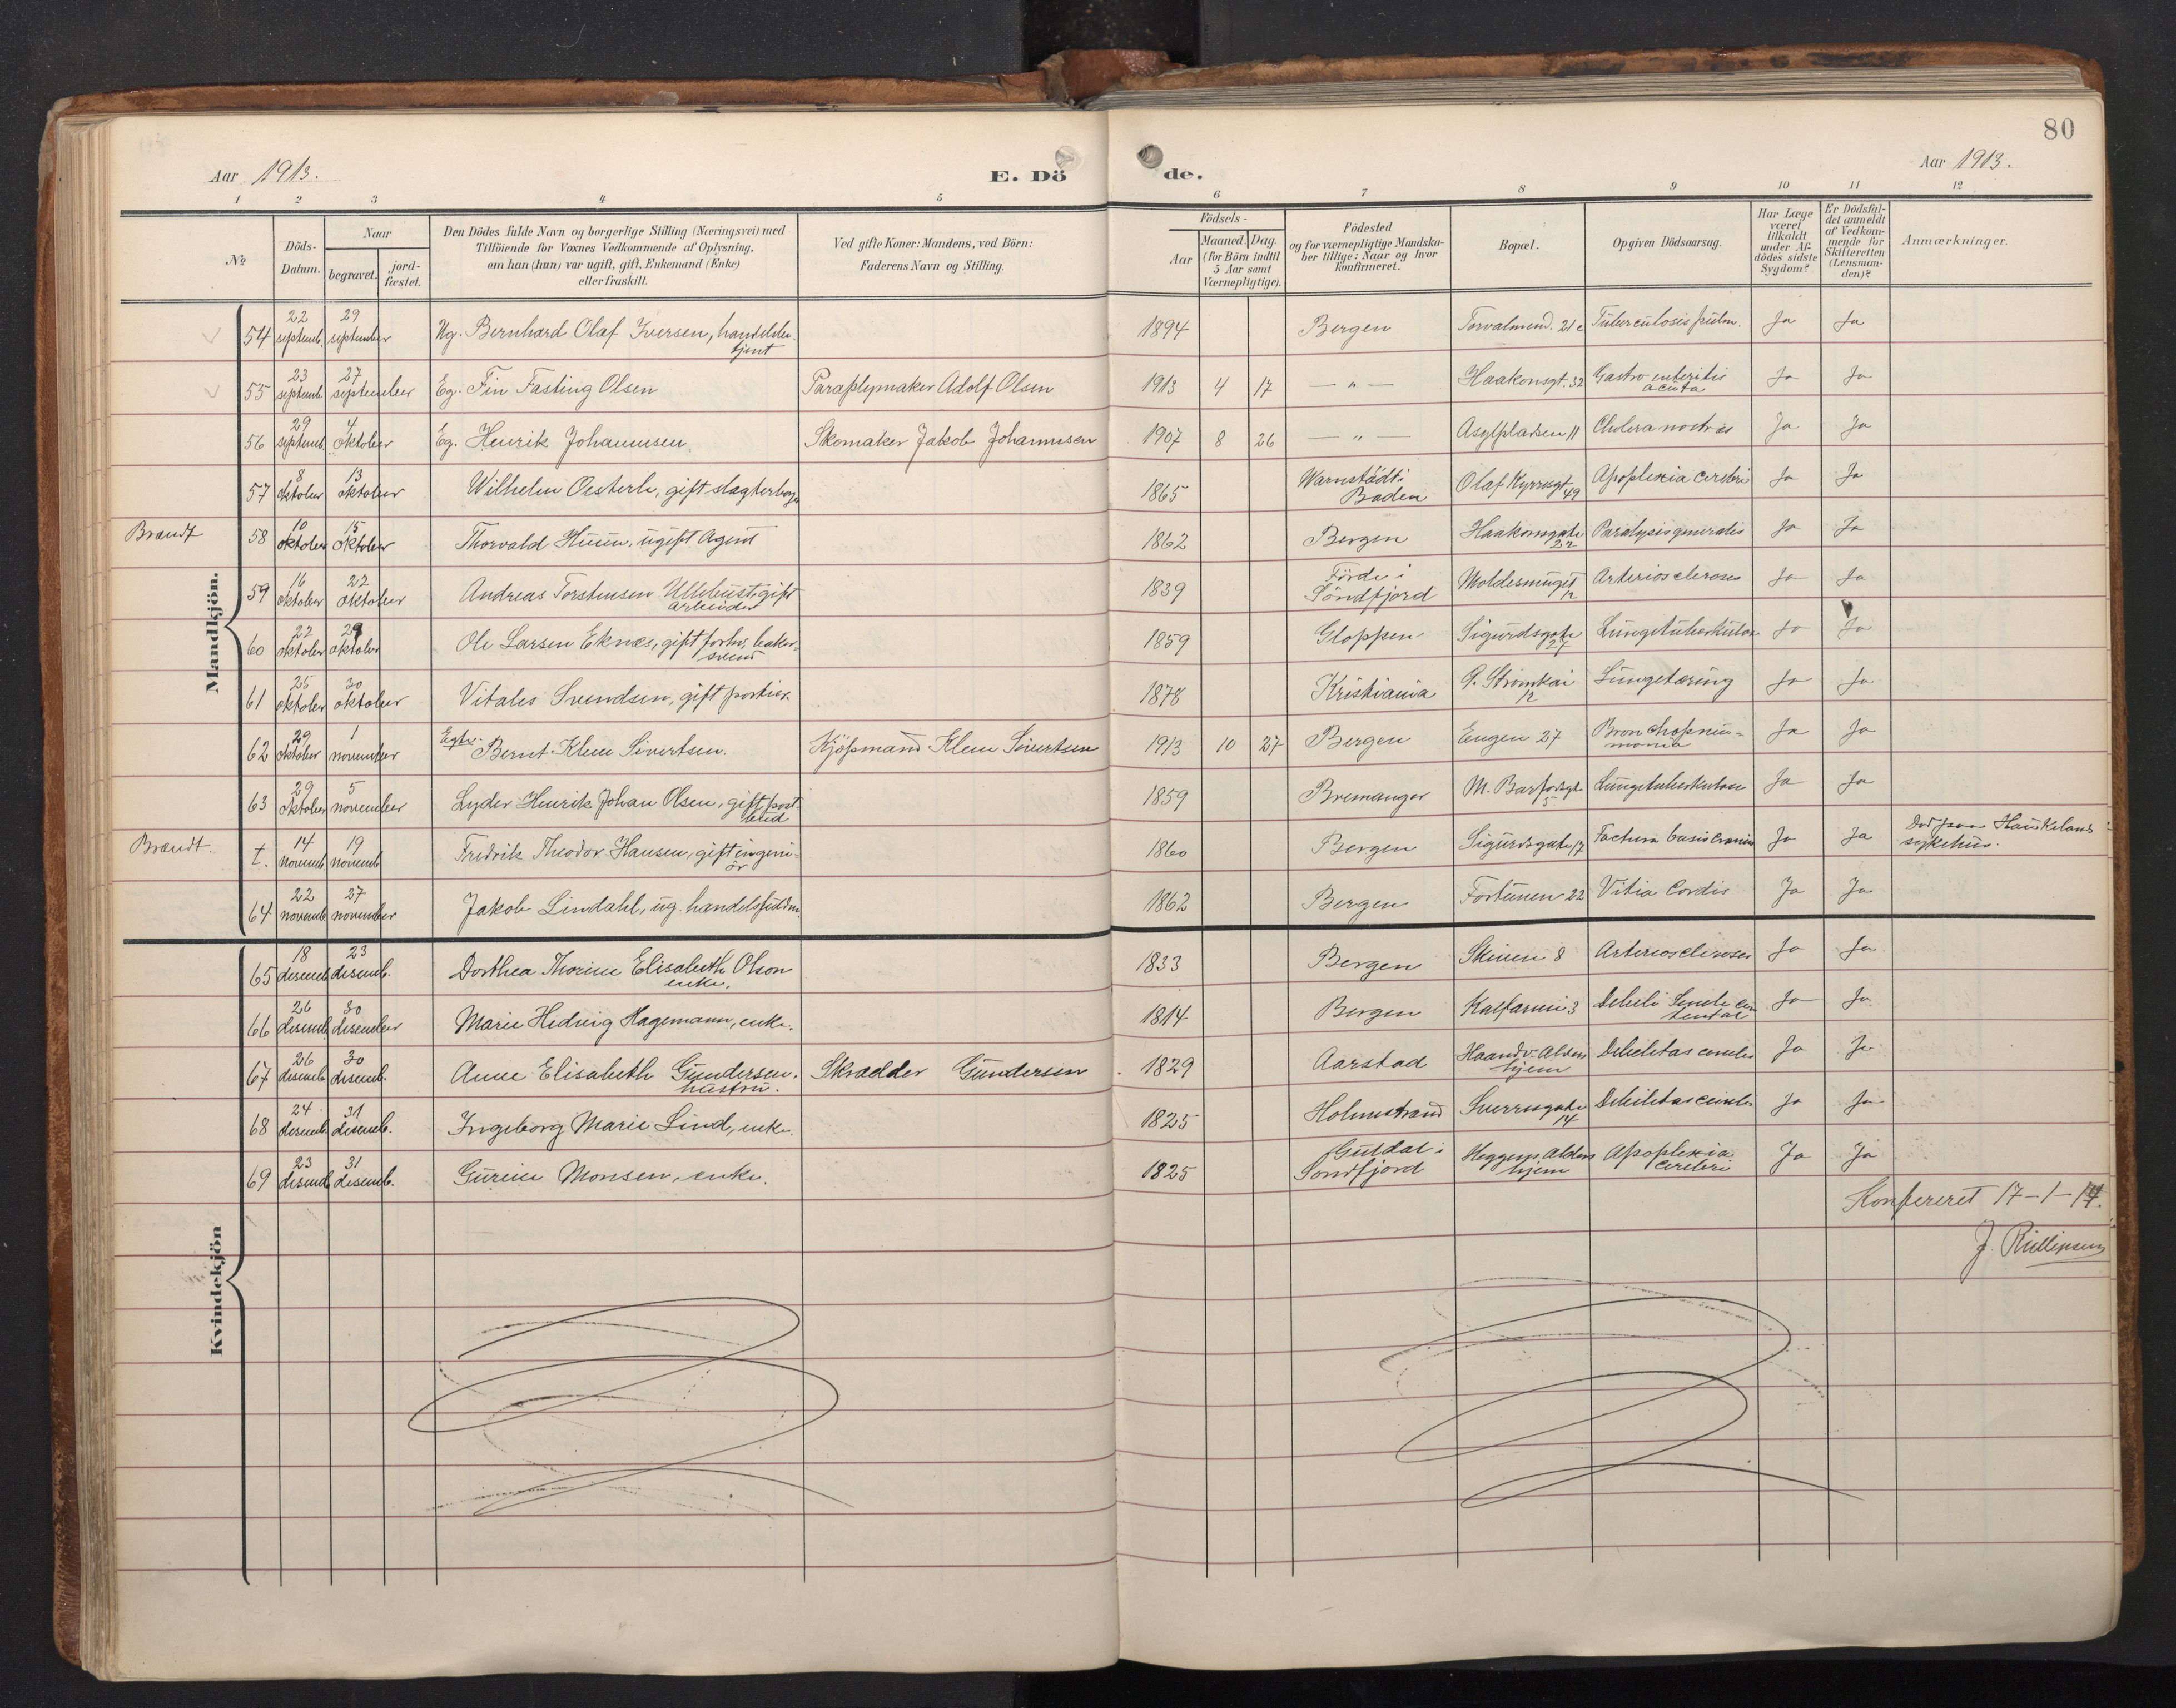 80
Aar 1913.
E. Dö de.
Aar 1913.
1 2 3 4 5 6 7 8 9 10 11 12
No
Döds-
Datum.
Naar
begravet.
jord-
fæstet.
Den Dödes fulde Navn og borgerlige Stilling (Næringsvei) med
Tilföiende for Voxnes Vedkommende af Oplysning,
om han (hun) var ugift, gift, Enkemand (Enke)
eller fraskilt.
Ved gifte Koner: Mandens, ved Börn:
Faderens Navn og Stilling.
Födsels-
Aar
Maaned. Dag.
(for Börn indtil
5 Aar samt
Værnepligtige).
Födested
og for værnepligtige Mandska-
ber tillige: Naar og hvor
konfirmeret.
Bopæl.
Opgiven Dödsaarsag.
Har Læge
været
tilkaldt
under Af-
dödes sidste
Sygdom?
Er Dödsfal-
det anmeldt
af Vedkom-
mende for
Skifteretten
(Lensman-
den)?
Anmærkninger.
Mandkjön.
54 22 septemb. 29 september Ug. Bernhard Olaf Iversen, handelsbe-
tjent 1894 Bergen Torvalmend. 21c Tuberculosis pulm. Ja Ja
55 23 septemb. 27 september Eg. Fin Fasting Olsen Paraplymaker Adolf Olsen 1913 4 17 — " — Haakonsgt. 32 Gastro enteritis
acuta Ja Ja
56 29 septemb. 4 oktober Eg. Henrik Johannesen Skomaker Jakob Johannesen 1907 8 26 — " — Asylpladsen 11 Cholera nostras Ja Ja
57 8 oktober 13 oktober Wilhelm Oesterle, gift slagter 1865 Warnstädt i
Baden Olaf Kyrresgt.
49 Apoplexia cerebri Ja Ja
Brandt 58 10 oktober 15 oktober Thorvald Huun, ugift Agent 1862 Bergen Haakonsgate
22 Paralysis generalis Ja Ja
59 16 oktober 22 oktober Andreas Torstensen Ullebust, gift
arbeider 1839 Förde i
Söndfjord Moldesmuget
12 Arteriosclerose Ja Ja
60 22 oktober 29 oktober Ole Larsen Eknæs, gift forhv. baker-
svend 1859 Gloppen Sigurdsgate
27 Lungetuberkulose Ja Ja
61 25 oktober 30 oktober Vitalis Svendsen, gift portier. 1878 Kristiania Strømkai
12 Lungetæring Ja Ja
62 29 oktober 1 november Egte. Bernt Klem Sivertsen. Kjöpmand Klem Sivertsen 1913 10 27 Bergen Engen 27 Bronchopneu-
monia Ja Ja
63 29 oktober 5 november Lyder Henrik Johan Olsen, gift post-
bud 1859 Bremanger M. Barfodsgt.
5 Lungetuberkulose Ja Ja
Brandt. t. 14 novemb. 19 novemb. Fredrik Theodor Hansen, gift ingeni-
ör 1860 Bergen Sigurdsgate 17 Factura basis cranii Ja Ja Död paa Haukelands
sykehus.
64 22 novemb. 27 november Jakob Lindahl, ug. handelsfuldm. 1862 Bergen Fortunen 22 Vitia Cordis Ja Ja
Kvindekjön
65 18 desemb. 23 desemb. Dorthea Thorine Elisabeth Olson
enke. 1833 Bergen Skiven 8 Arteriosclerose Ja Ja
66 26 desemb. 30 desember Marie Hedvig Hagemann, enke. 1814 Bergen Kalfarvei 3 Ja Ja
67 26 desemb. 30 desemb. Anne Elisabeth Gundersen.
hustru. Skrædder Gundersen 1829 Aarstad Haandv. Alders
hjem Debilitas senilis Ja Ja
68 24 desemb. 31 desemb. Ingeborg Marie Lind, enke. 1825 Holmestrand Sverresgate
14 Debilitas senilis Ja Ja
69 23 desemb. 31 desemb. Gurine Monsen, enke. 1825 Guldal i
Sondfjord Alders
hjem Apoplexia
cerebri Ja Ja
Konfereret 17-1-14.